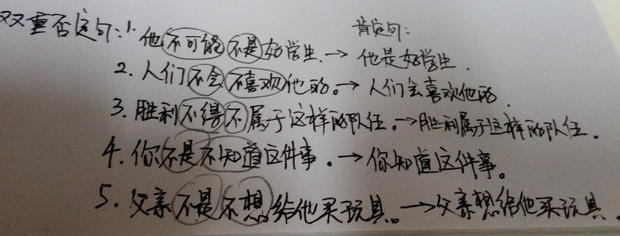 双重否定句: 肯定句:
1. 他不可能不是好学生.→他是好学生.
2. 人们不会不喜欢他的。→人们会喜欢他的.
3. 胜利不得不属于这样的队伍。→胜利属于这样的队伍.
4. 你不是不知道这件事。→你知道这件事。
5. 父亲不是不想给他买玩具。→父亲想给他买玩具.